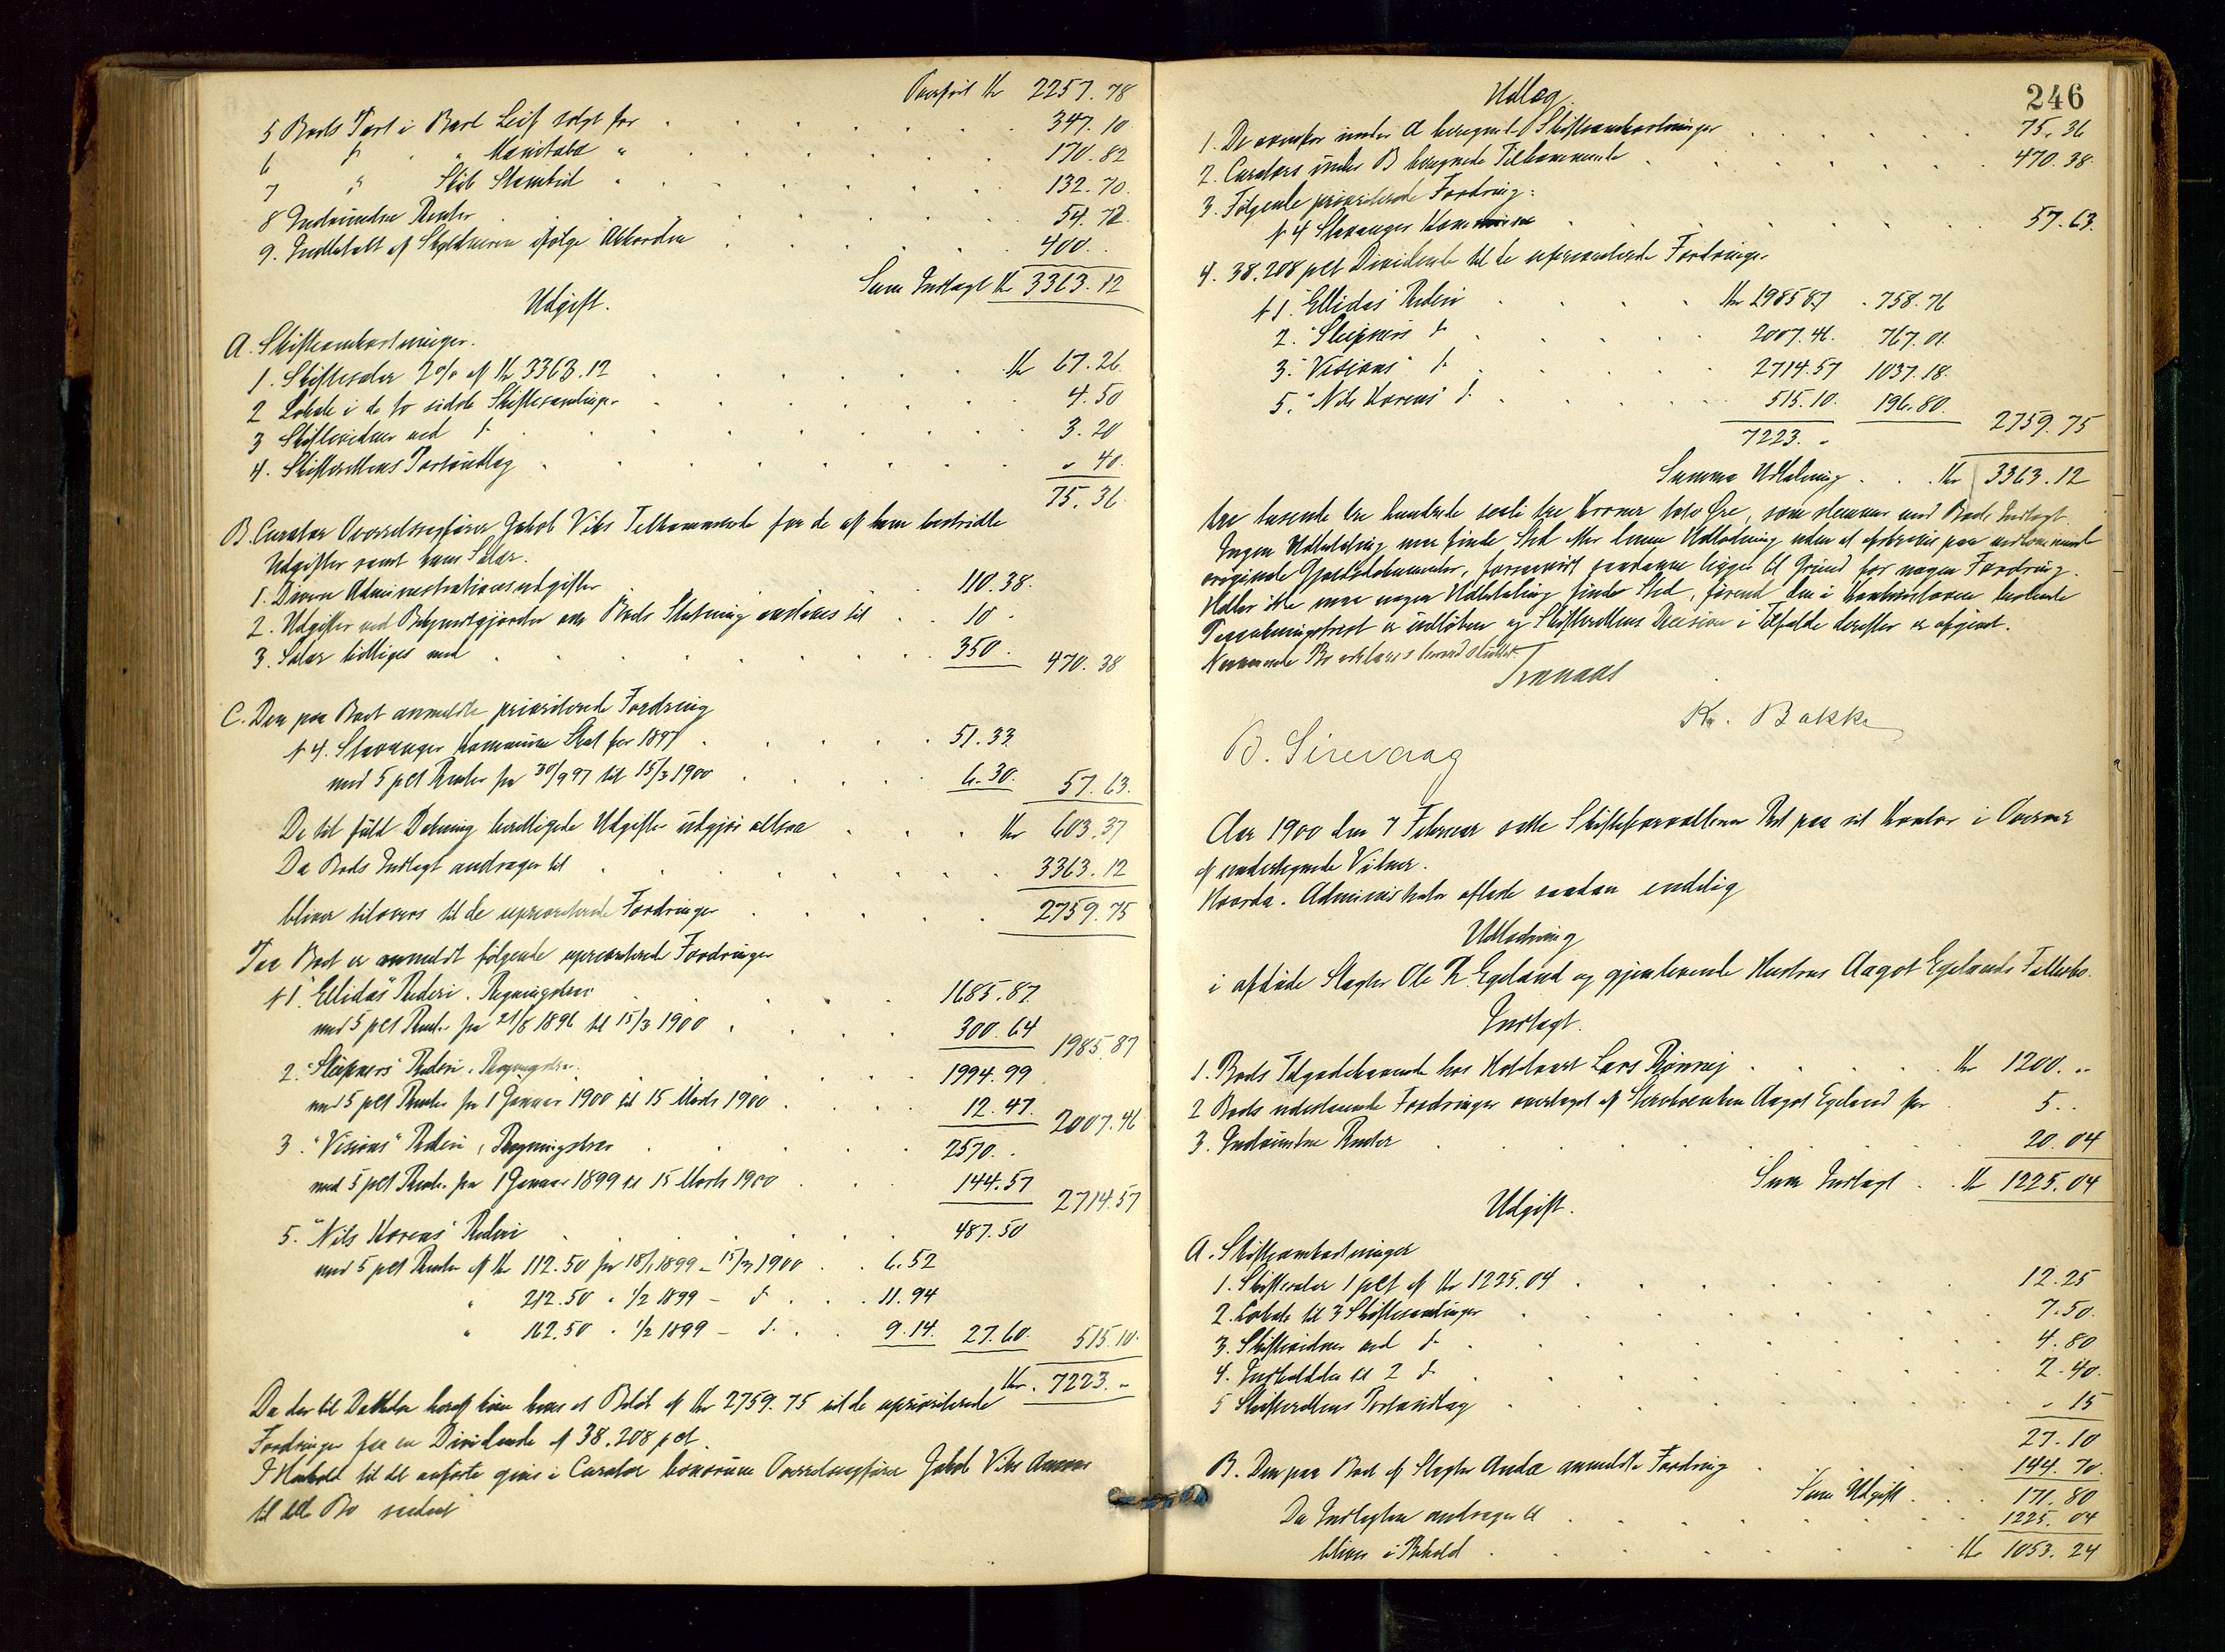 Overført Kr 2257.78
5 Boets Part i Bark Leif solgt for 347.10
6 d " Manitoba " 170.82
7 " Skib 132.70
8 Indvundne Renter 54.72
9. Indbetalt af Skyldneren ifølge Akkorden 400.
Sum Indtægt Kr 3363.12
Udgift.
A. Skifteomkostninger.
1. Skiftesalær 2% af Kr 3363.12 Kr 67.26
2 Lokale i de to sidste Skiftesamlinger 4.50
3 Skiftevidner ved d 3.20
4. Skifterettens Portoudlæg " 40.
75.36
B. Curator Overretssagfører Jakob Viks Tilkommende for de af ham bestridte
Udgifter samt hans Salær.
1. Diverse Administrationsudgifter 110.38.
2. Udgifter ved Bekjendtgjørelse om Boets Slutning ansættes til 10.
3. Salær billiges med 350. 470.38
C. Den paa Boet anmeldte prioriterede Fordring
№ 4. Stavanger Kommune Skat for 1897 51.33
med 5 pct Renter fra 30/9 97 til 15/3 1900 6.30. 57.63.
De til fuld Dækning berettigede Udgifter udgjør altsaa Kr 603.37
Da Boets Indtægt andrager til 3363.12
bliver tilovers til de uprioriterede Fordringer 2759.75
Paa Boet er anmeldt følgende uprioriterede Fordringer
№ 1 "Ellidas" Rederi. Regningskrav 1685.87.
med 5 pct Renter fra 21/8 1896 til 15/3 1900 300.64 1985.87
2. "Sleipners" Rederi. Regningskrav. 1994.99
med 5 pct Renter fra 1 Januar 1900 til 15 Marts 1900 12.47. 2007.46
3. "Visions" Rederi, Regningskrav 2570..
med 5 pct Renter fra 1 Januar 1899 til 15 Marts 1900 144.57 2714.57
5. "Nils Korens" Rederi 487.50
med 5 pct Renter af Kr 112.50 fra 18/1 1899 – 15/3 1900 6.52
" 212.50 " 1/2 1899 – d 11.94
" 162.50 " 1/2 1899 – d. 9.14. 27.60. 515.10.
Kr. 7223.–
Da der til Dækkelse heraf kun haves et Beløb af Kr 2759.75 vil de uprioriterede
Fordringer faa en Dividende af 38.208 pct.
I Henhold til det anførte gives Curator bonorum Overretssagfører Jakob Viks Ansvar
til dette Bo saadant
246
Udlæg
1. De ovenfor under A beregnede Skifteomkostninger 75.36
2. Curators under B beregnede Tilkommende 470.38
3. Følgende prioriterede Fordring:
№ 4 Stavanger Kommune 57.63.
4. 38.208 pct Dividende til de uprioriterede Fordringer
№ 1. "Ellidas" Rederi Kr 1985.87 758.76
2. "Sleipners" d 2007.46. 767.01.
3. "Visions" d. 2714.57 1037.18.
5. "Nils Korens" d. 515.10. 196.80.
7223.. 2759.75
Summa Udbetaling Kr 3363.12
tre tusende tre hundrede seksti tre Kroner tolv Øre, som stemmer med Boets Indtægt.
Ingen Udbetaling maa finde Sted efter denne Udlodning uden at afskrives paa vedkommende
originale Gjældsdokumenter, forsaavidt saadanne ligger til Grund for nogen Fordring.
Heller ikke maa nogen Udbetaling finde Sted, førend den i Konkursloven bestemte
Paaankningsfrist er udløben og Skifterettens Decision i Tilfælde derefter er afgivet.
Nærværende Bo erklæres herved sluttet.
Kr. Bakke
B. Sirevaag
Aar 1900 den 7 Februar satte Skifteforvalteren Ret paa sit Kontor i Overvær
af undertegnede Vidner.
Hvorda. Administrator aflæste saadan endelig
Udlodning
i afdøde Slagter Ole R. Egeland og gjenlevende Hustrus Aagot Egelands Fællesbo.
Indtægt.
1. Boets Tilgodehavende hos Lars Kr 1200...
2 Boets udestaaende Fordringer overtaget af Aagot Egeland for 5..
3. Indvundne Renter 20.04
Sum Indtægt Kr 1225.04
Udgift.
A. Skifteomkostninger
1. Skiftesalær 1 pct af Kr 1225.04 12.25
2. Lokale til 3 Skiftesamlinger 7.50.
3. Skiftevidner ved d 4.80
4. Indkaldelse til 2 d. 2.40.
5 Skifterettens Portoudlæg " 15
27.10
B. Den paa Boet af Slagter Anda anmeldte Fordring 144.70.
Sum Udgift 171.80
Da Indtægten andrager til 1225.04
bliver i Behold Kr 1053.24